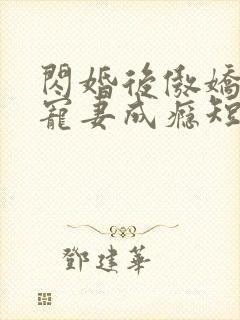 閃婚後傲嬌
寵妻成癮短
鄧建華